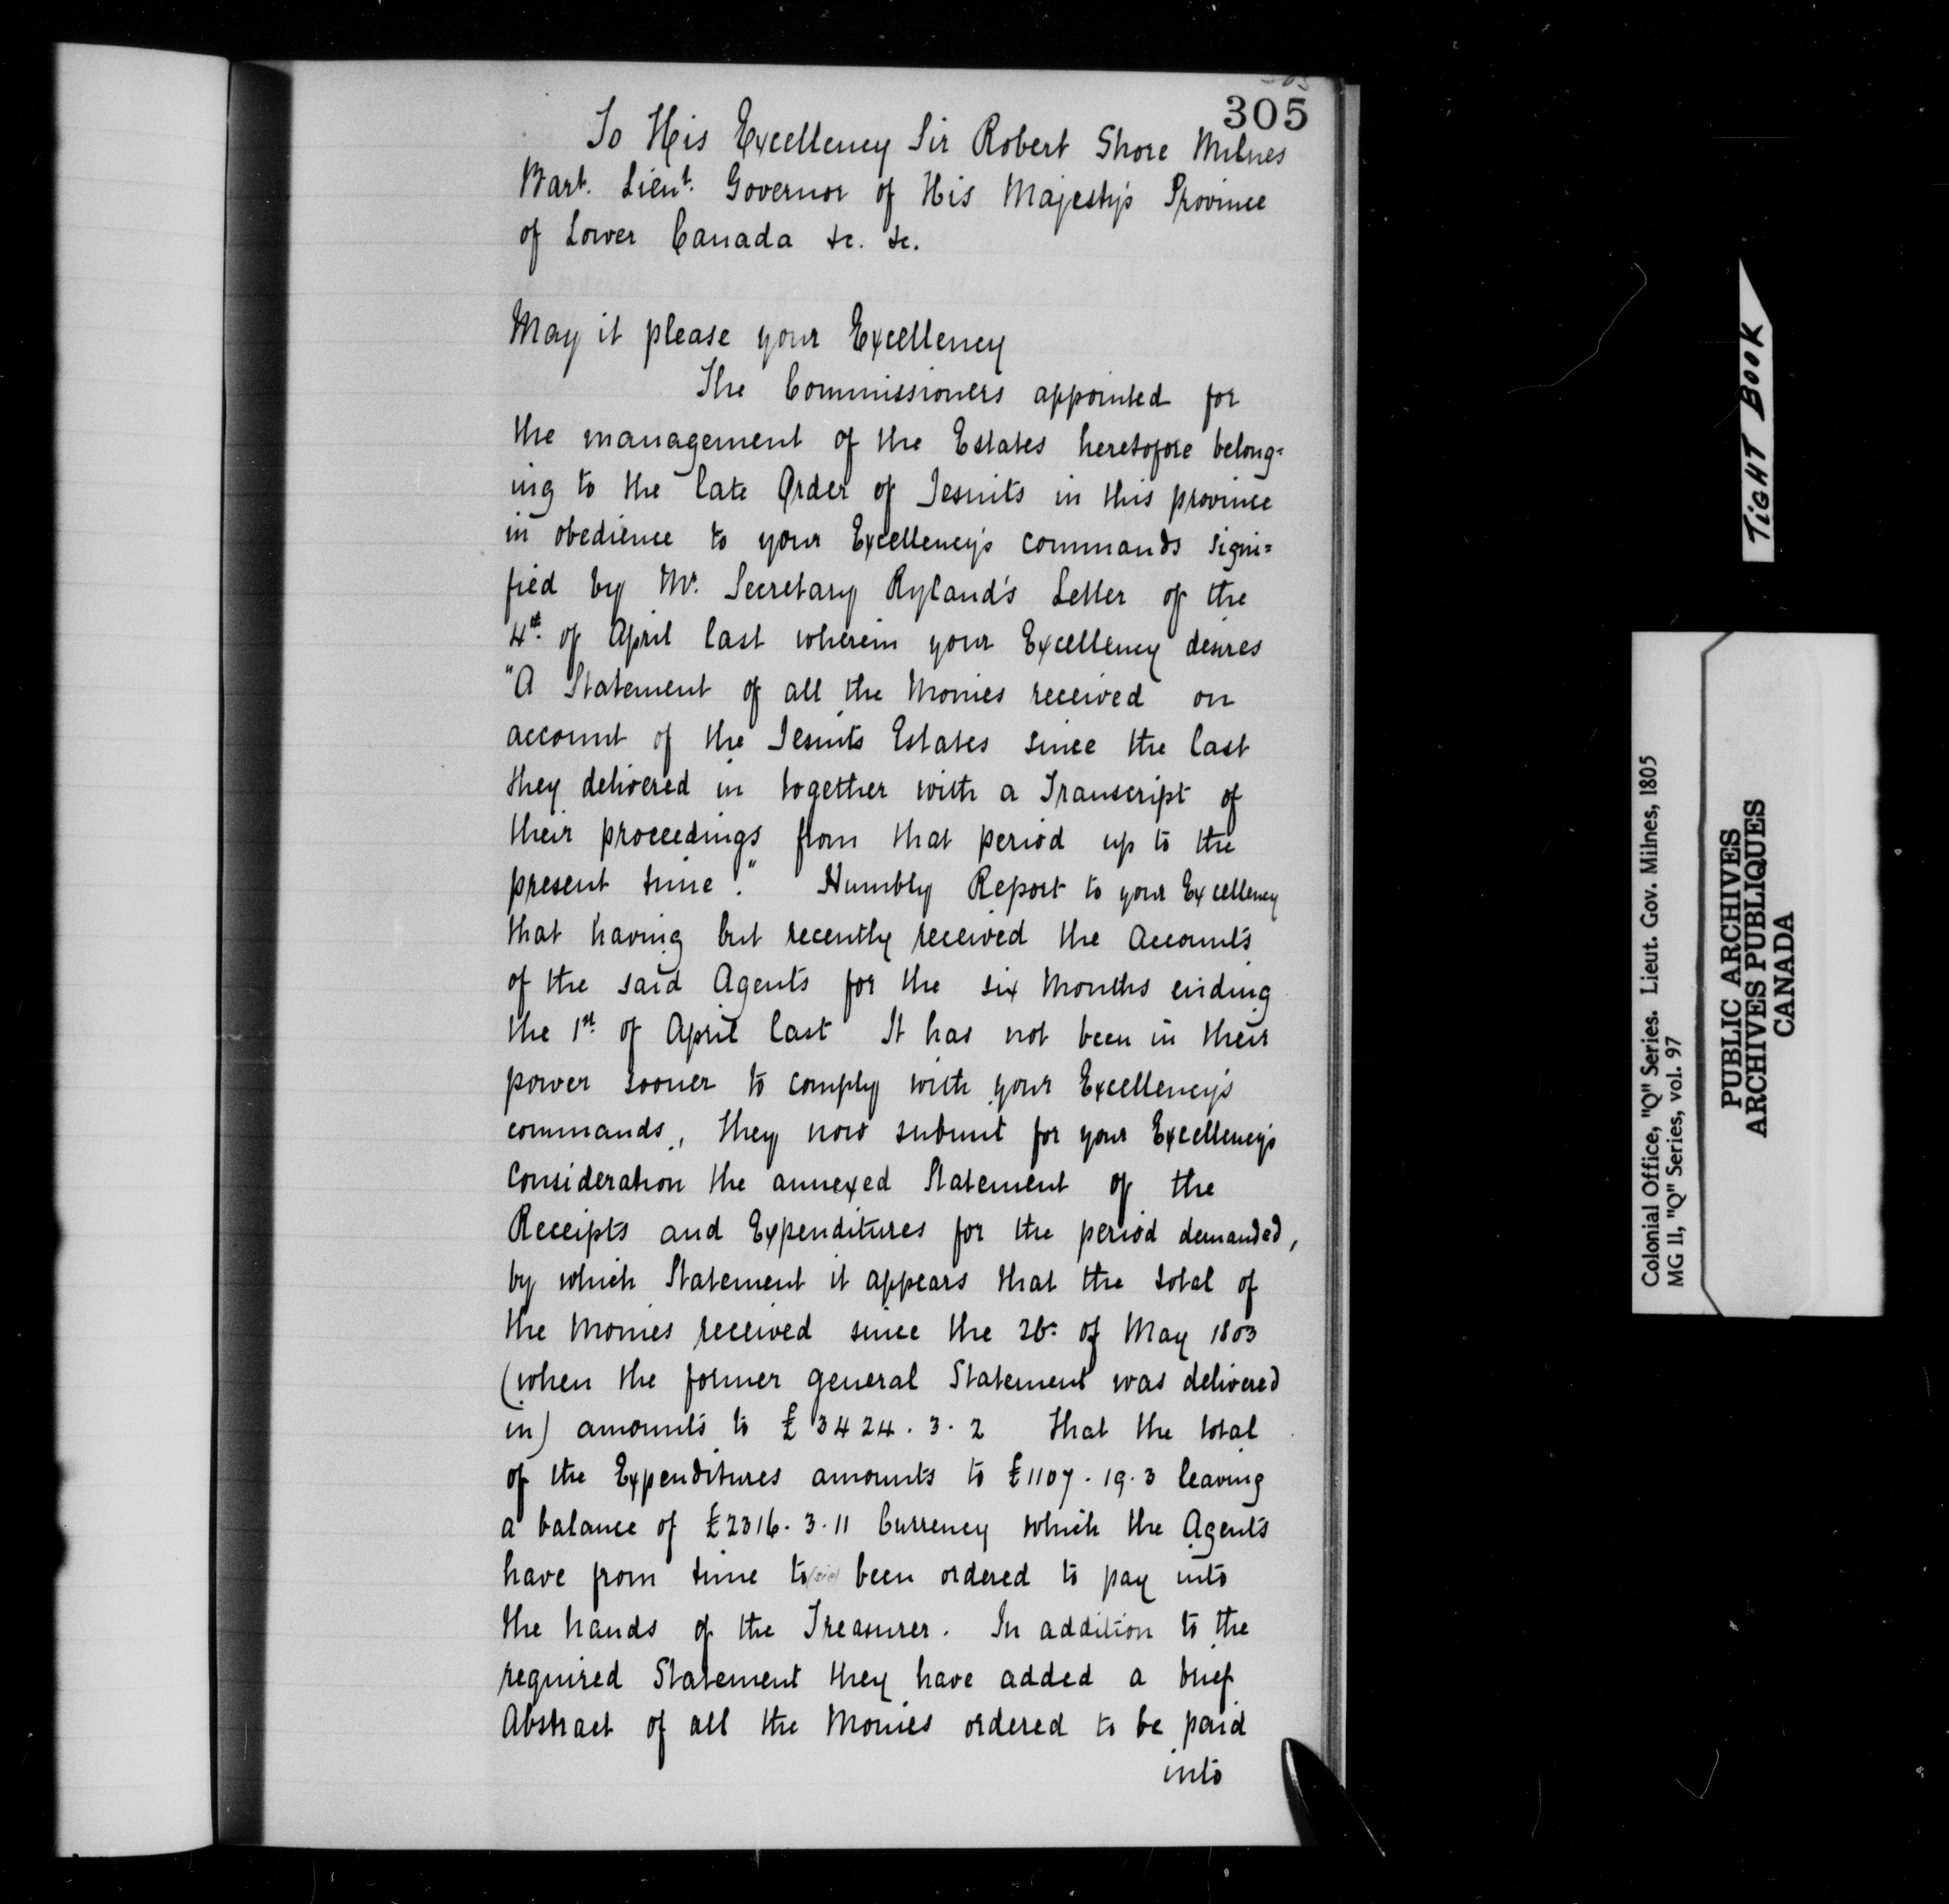 305
To His Excellency Sir Robert Shore Milnes
Bart. Lieut. Governor of His Majesty's Province
of Lower Canada &c. &c.
May it please your Excellency
The Commissioners appointed for
the management of the Estates heretofore belong=
ing to the late Order of Jesuits in this province
in obedience to your Excellency's commands signi=
fied by Mr. Secretary Ryland's Letter of the
4th. of April last wherein your Excellency desires
"A Statement of all the Monies received on
account of the Jesuits Estates since the last
they delivered in together with a Transcript of
their proceedings from that period up to the
present time." Humbly Report to your Excellency
that having but recently received the Accounts
of the said Agents for the six Months ending
the 1st. of April last It has not been in their
power sooner to comply with your Excellency's
commands, they now submit for your Excellency's
Consideration the annexed Statement of the
Receipts and Expenditures for the period demanded,
by which Statement it appears that the total of
the Monies received since the 26. of May 1803
(when the former general Statement was delivered
in) amounts to £3424.3.2 that the total
of the Expenditures amounts to £1107.19.3 leaving
a balance of £2316.3.11 Currency which the Agents
have from time to (sic) been ordered to pay into
the hands of the Treasurer. In addition to the
required Statement they have added a brief
Abstract of all the Monies ordered to be paid
into
TIGHT BOOK
Colonial Office, "Q" Series. Lieut. Gov. Milnes, 1805
MG 11, "Q" Series, vol. 97
PUBLIC ARCHIVES
ARCHIVES PUBLIQUES
CANADA